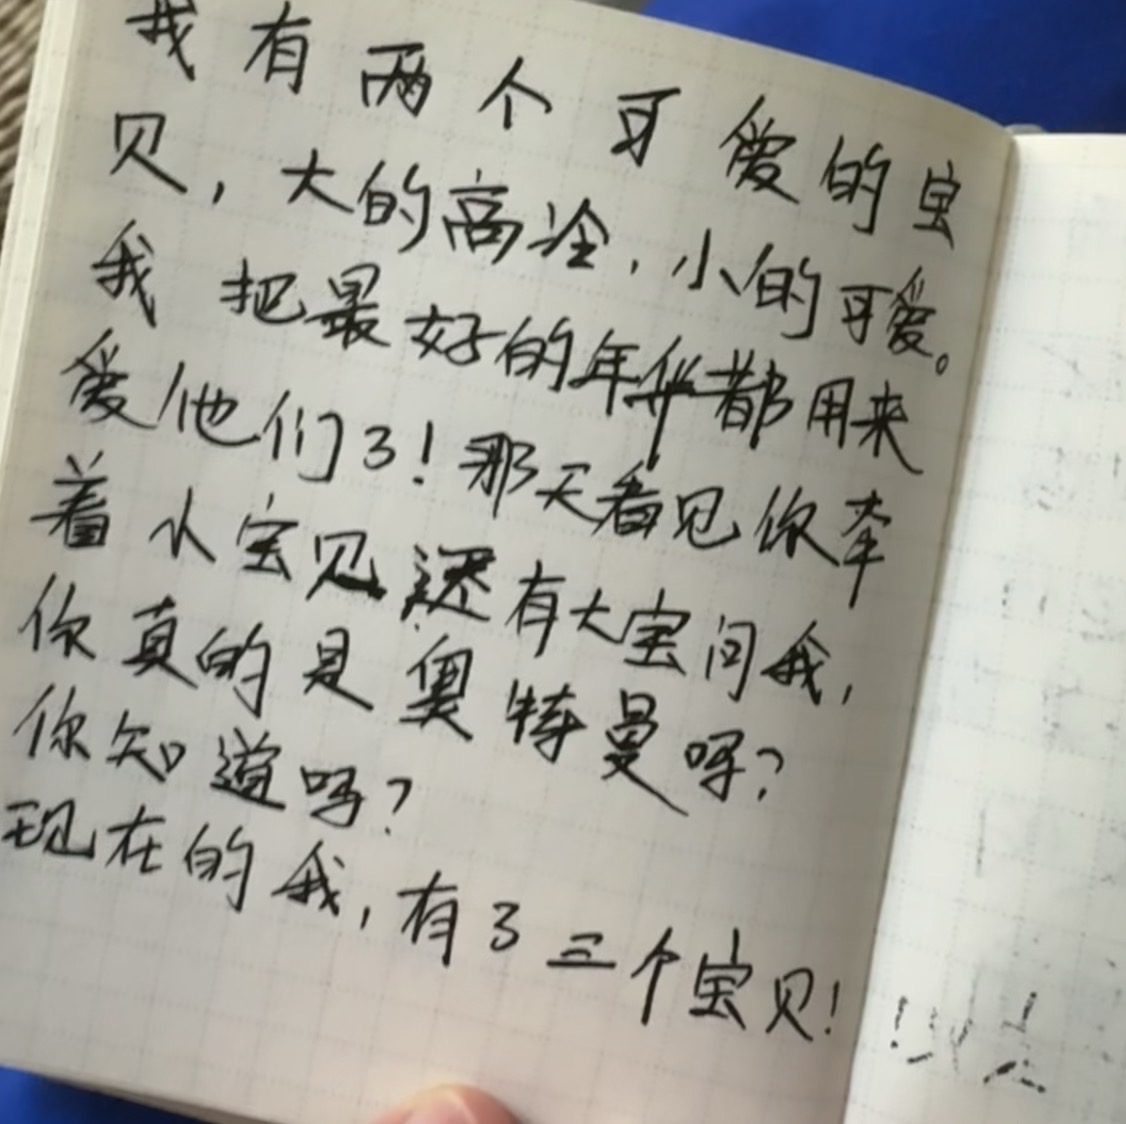 我有两个可爱的宝
贝，大的高冷，小的可爱。
我把最好的年华都用来
爱他们了！那天看见你牵
着小宝贝还有大宝问我，
你真的是奥特曼吗？
你知道吗？
现在的我，有了三个宝贝！